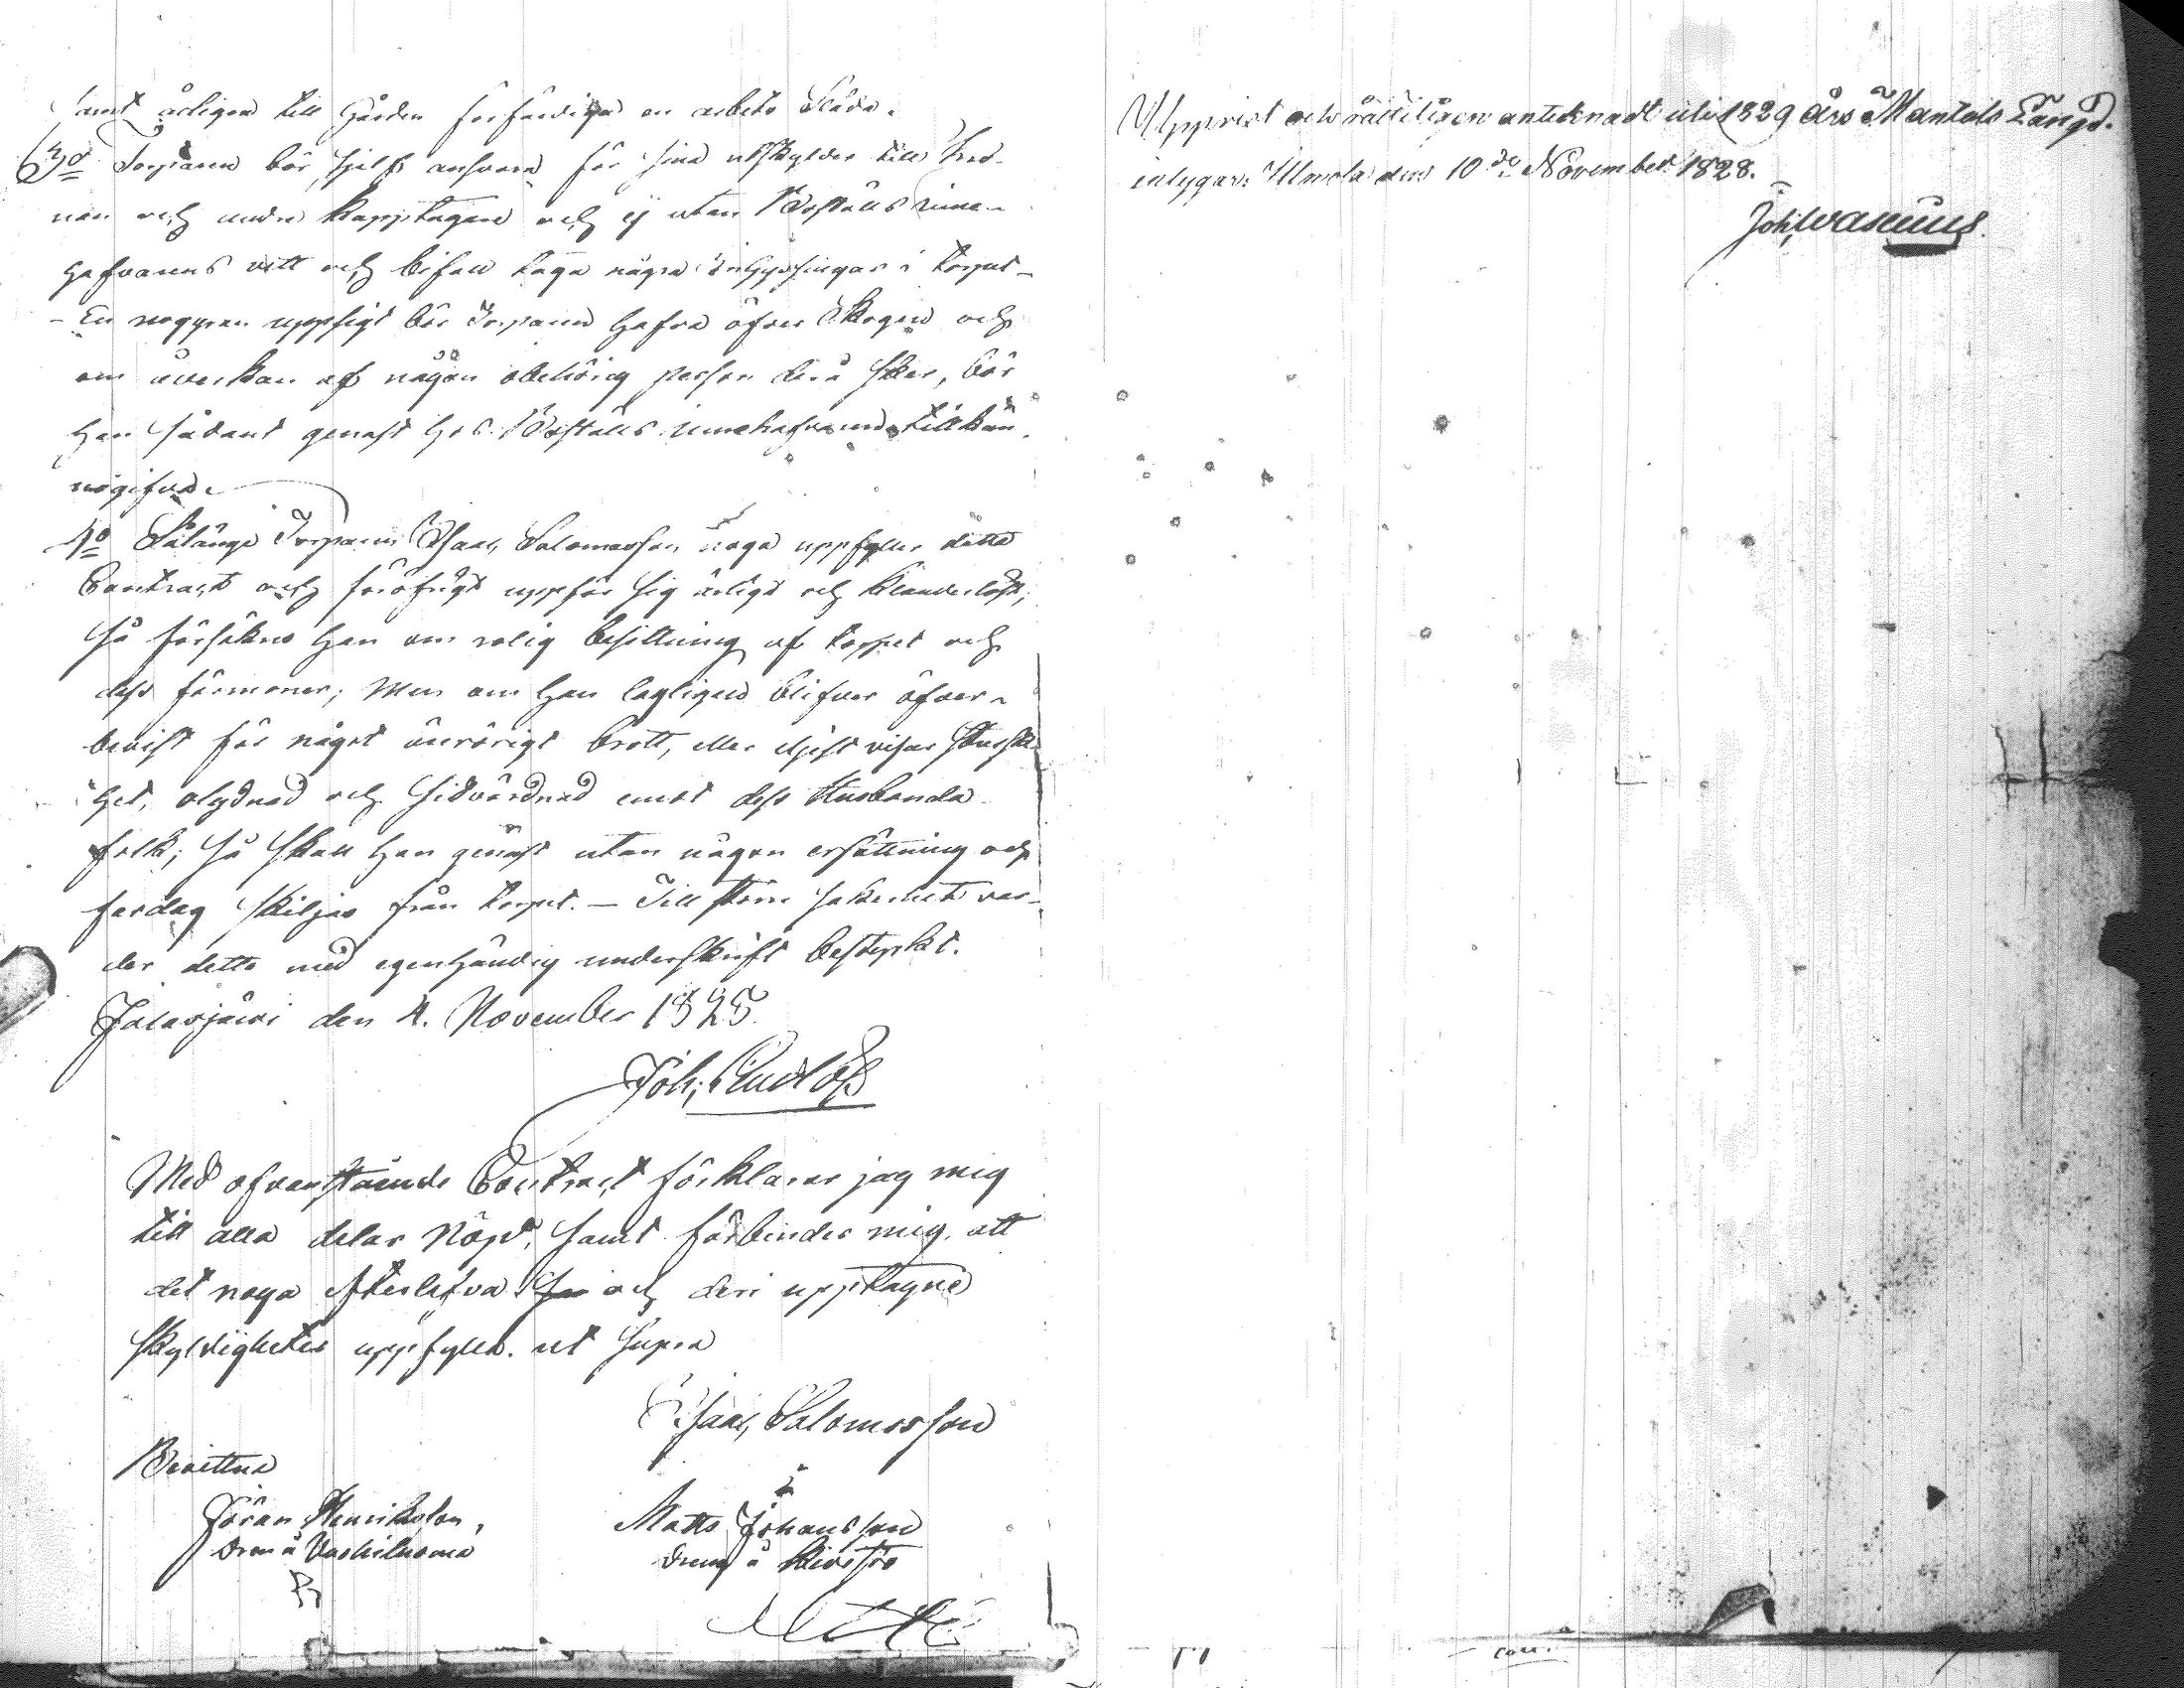 samt årligen till Gården förfärdiga en arbets Släda.
3o Torparen bör sjelf ansvara för sina utskylder till Kro-
nan och andra Kapptagare och ej utan Boställs inne-
hafvarens vett och bifall taga några inhysingar i torpet -
- En noggran uppsigt bör Torparen hafva öfver Skogen och
om åverkan af någon obehörig person derå sker, bör
han sådant genast hos Boställs innehafvaren tillkän-
nagifva.
4o Sålänge Torparen Isaac Salomonsson noga uppfyller detta
Contract och föröfrigt uppför sig ärligt och klanderlöst,
så försäkras han om rolig besittning af torpet och
dess förmoner; Men om han lagligen blifver öfver-
bevist för något ärerörigt brott, eller eljest visar
het, olydnad och sidvördnad emot dess Husbonda
folk; så skall han genast utan någon ersättning och
fardag skiljas från torpet. - Till större säkerhet var-
der detta med egenhändig underskrift bestyrkt.
Jalasjärvi den 4. November 1825.
Joh.
Med ofvanstående Contract förklarar jag mig
till alla delar nögd, samt förbinder mig, att
det noga efterlefva och deri upptagne
skyldigheter uppfylla. ut supra
Isaac Salomonsson
Bevittna
Jöran Henriksson,
Dreng å
Matts Johansson
Dreng å
Uppvist och antecknadt uti 1829 års Mantals Längd.
intygar. Ilmola den 10de November 1828.
Joh. Wasenius.